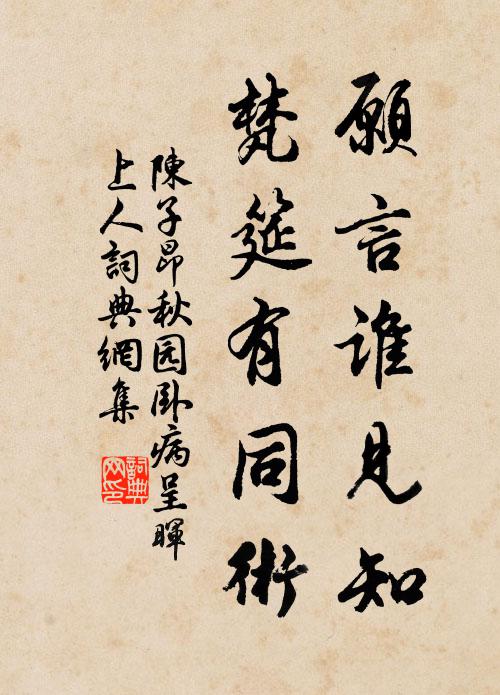 願言誰見知
梵筵有同術
陳子昂秋园卧病呈暉
上人詞典網集
詞典
网印